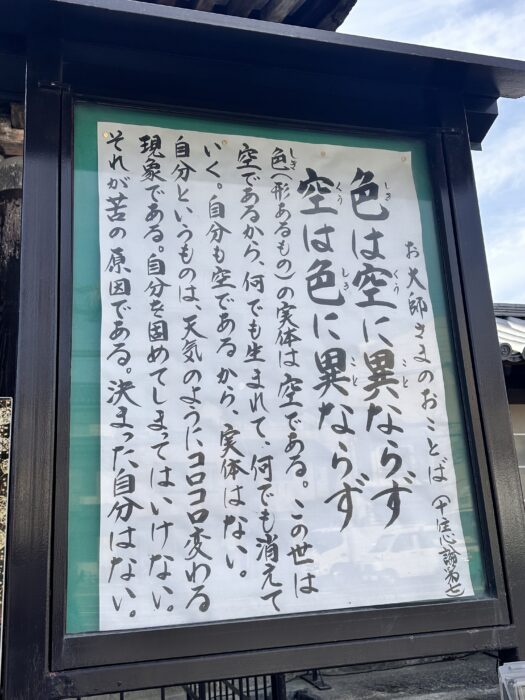 お大師さまのおことば(十住心論第七)
しき くう こと
色は空に異ならず
くう しき こと
空は色に異ならず
しき
色(形あるもの)の実体は空である。この世は
空であるから、何でも生まれて、何でも消えて
いく。自分も空であるから、実体はない。
自分というものは、天気のようにコロコロ変わる
現象である。自分を固めてしまってはいけない。
それが苦の原因である。決まった自分はない。